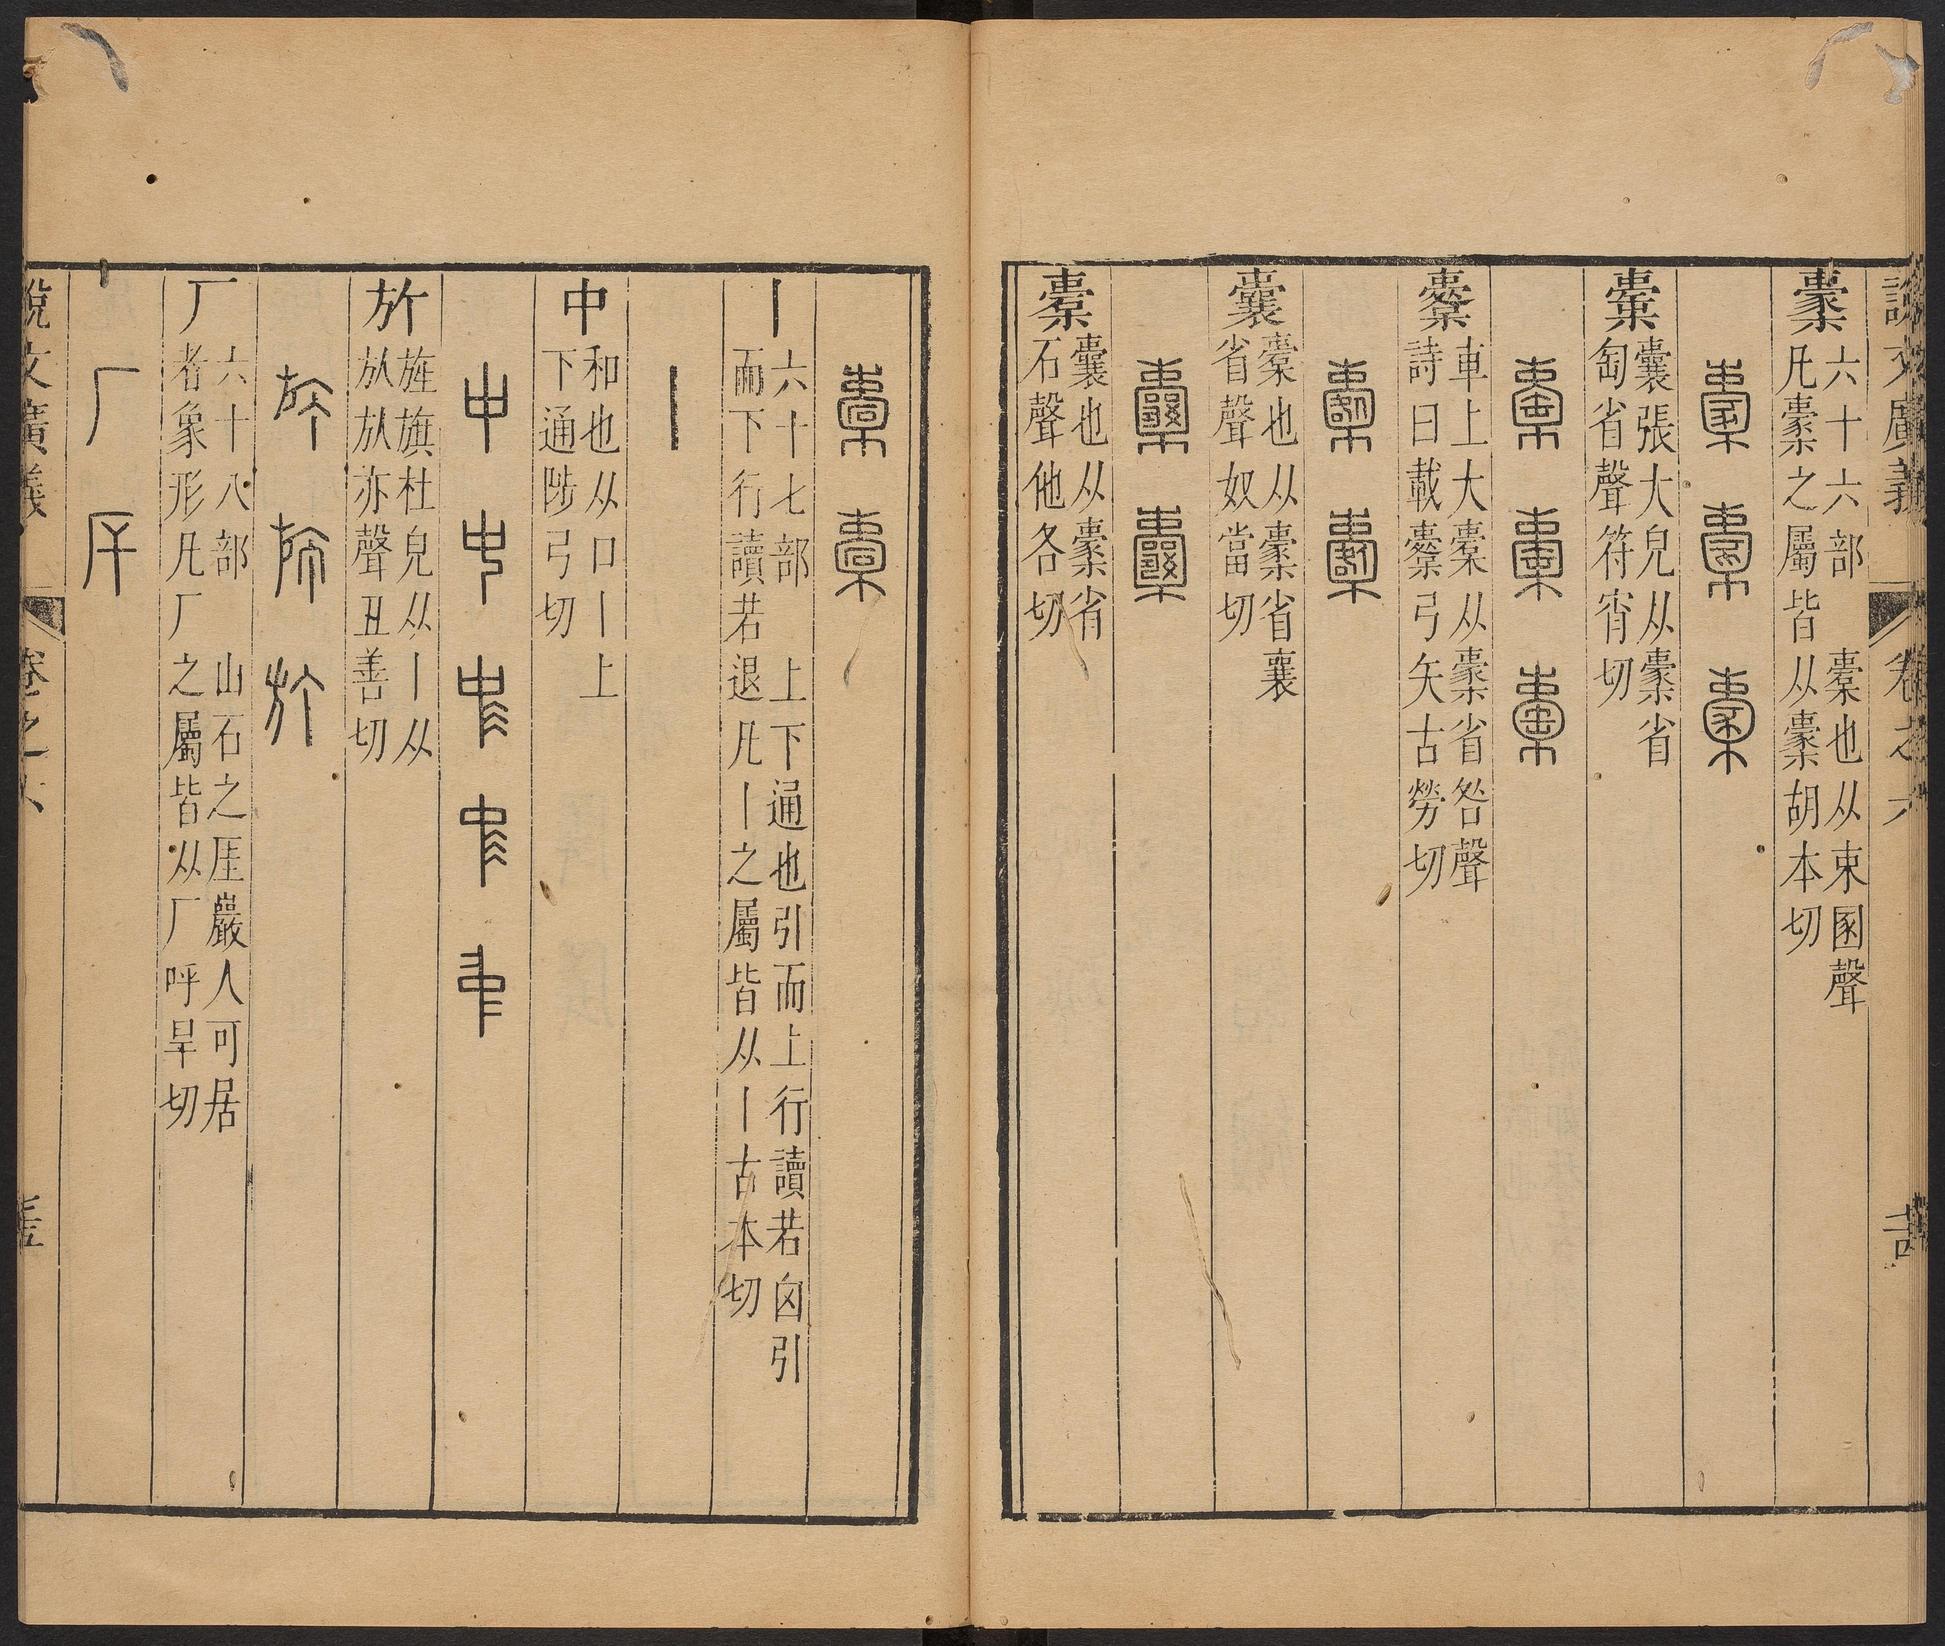 說文廣義 卷之六
㯻
六十六部 橐也从束圂聲
凡㯻之屬皆从㯻胡本切
橐 橐 橐
㯱
囊張大皃从㯻省
匋省聲符宵切
㯱 㯱 㯱
櫜
車上大橐从㯻省咎聲
詩曰載櫜弓矢古勞切
櫜 櫜
囊
橐也从㯻省襄
省聲奴當切
囊 囊
橐
囊也从㯻省
石聲他各切
橐 橐
丨
六十七部 上下通也引而上行讀若囟引
而下行讀若退凡丨之屬皆从丨古本切
丨
中
和也从口丨上
下通陟弓切
中 中 中 中 中
㫃
旌旗杜皃从丨从
㫃㫃亦聲丑善切
厂
六十八部 山石之厓巖人可居
者象形凡厂之屬皆从厂呼旱切
厂 厈
說文廣義 卷之六